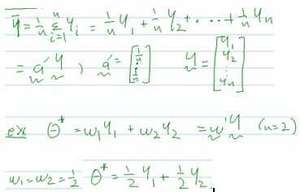 ȳ = 1/n Σ_{i=1}^{n} y_i = 1/n y_1 + 1/n y_2 + ... + 1/n y_n
= a' y , a' = [1/n ⋮ 1/n] y = [y_1 y_2 ⋮ y_n]
ex θ* = w_1 y_1 + w_2 y_2 = w'y (n=2)
w_1 = w_2 = 1/2 θ* = 1/2 y_1 + 1/2 y_2